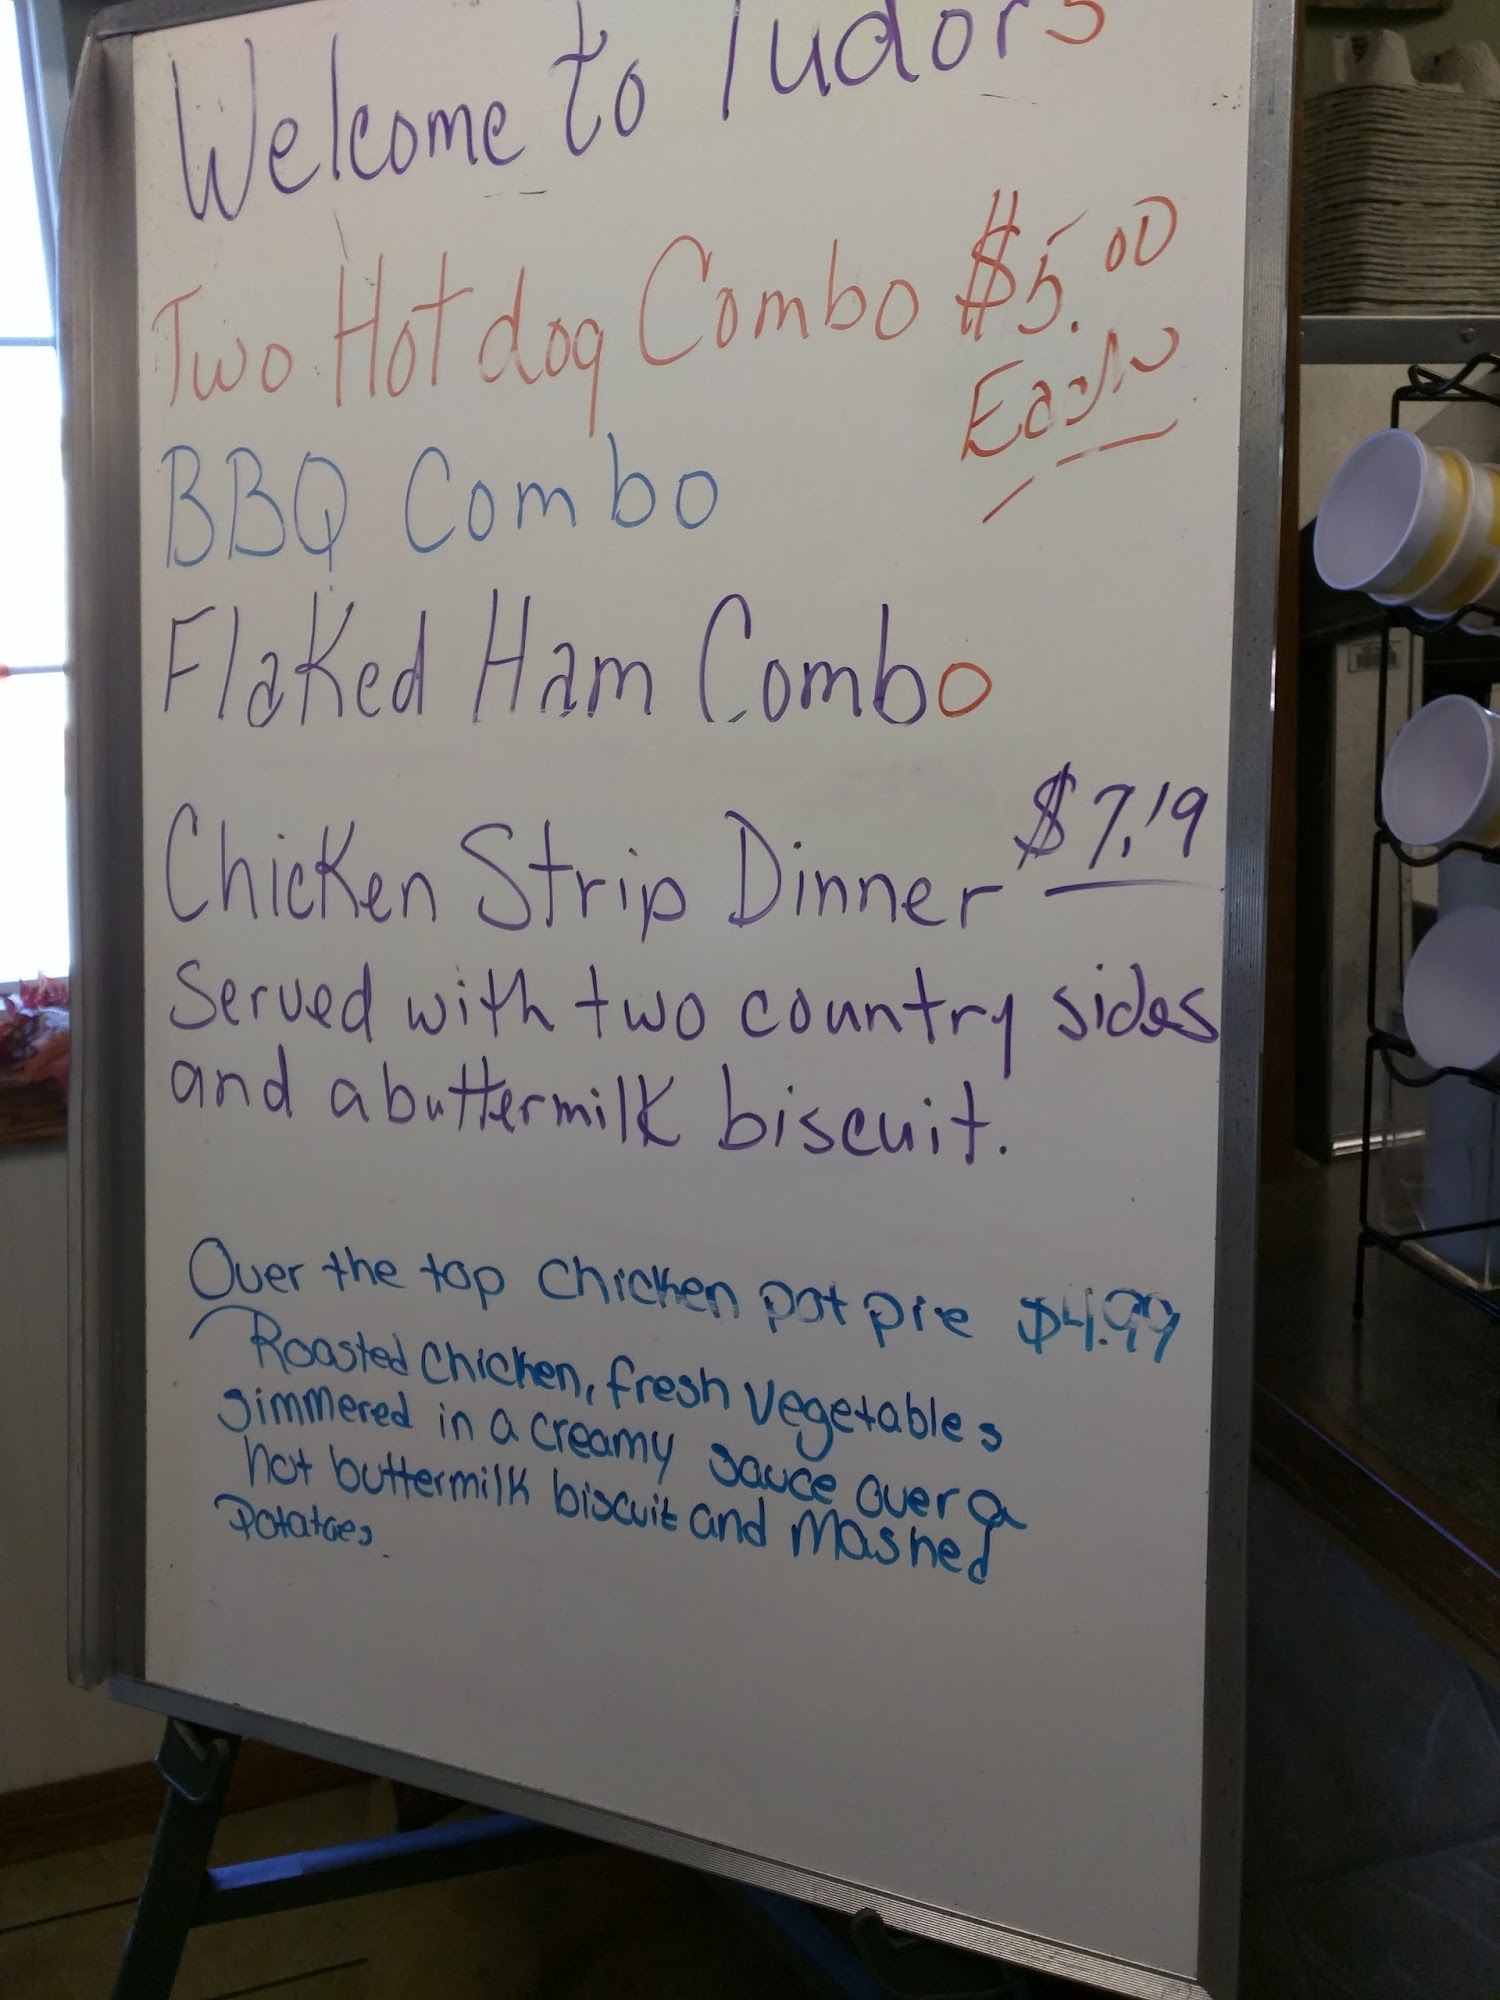 Welcome to Tudors
Two Hot dog Combo $5.00
Each
BBQ Combo
Flaked Ham Combo
Chicken Strip Dinner $7.19
Served with two country sides
and a buttermilk biscuit.
Over the top Chicken pot pie $4.99
Roasted Chicken, fresh vegetables
simmered in a creamy sauce over a
hot buttermilk biscuit and Mashed
Potatoes